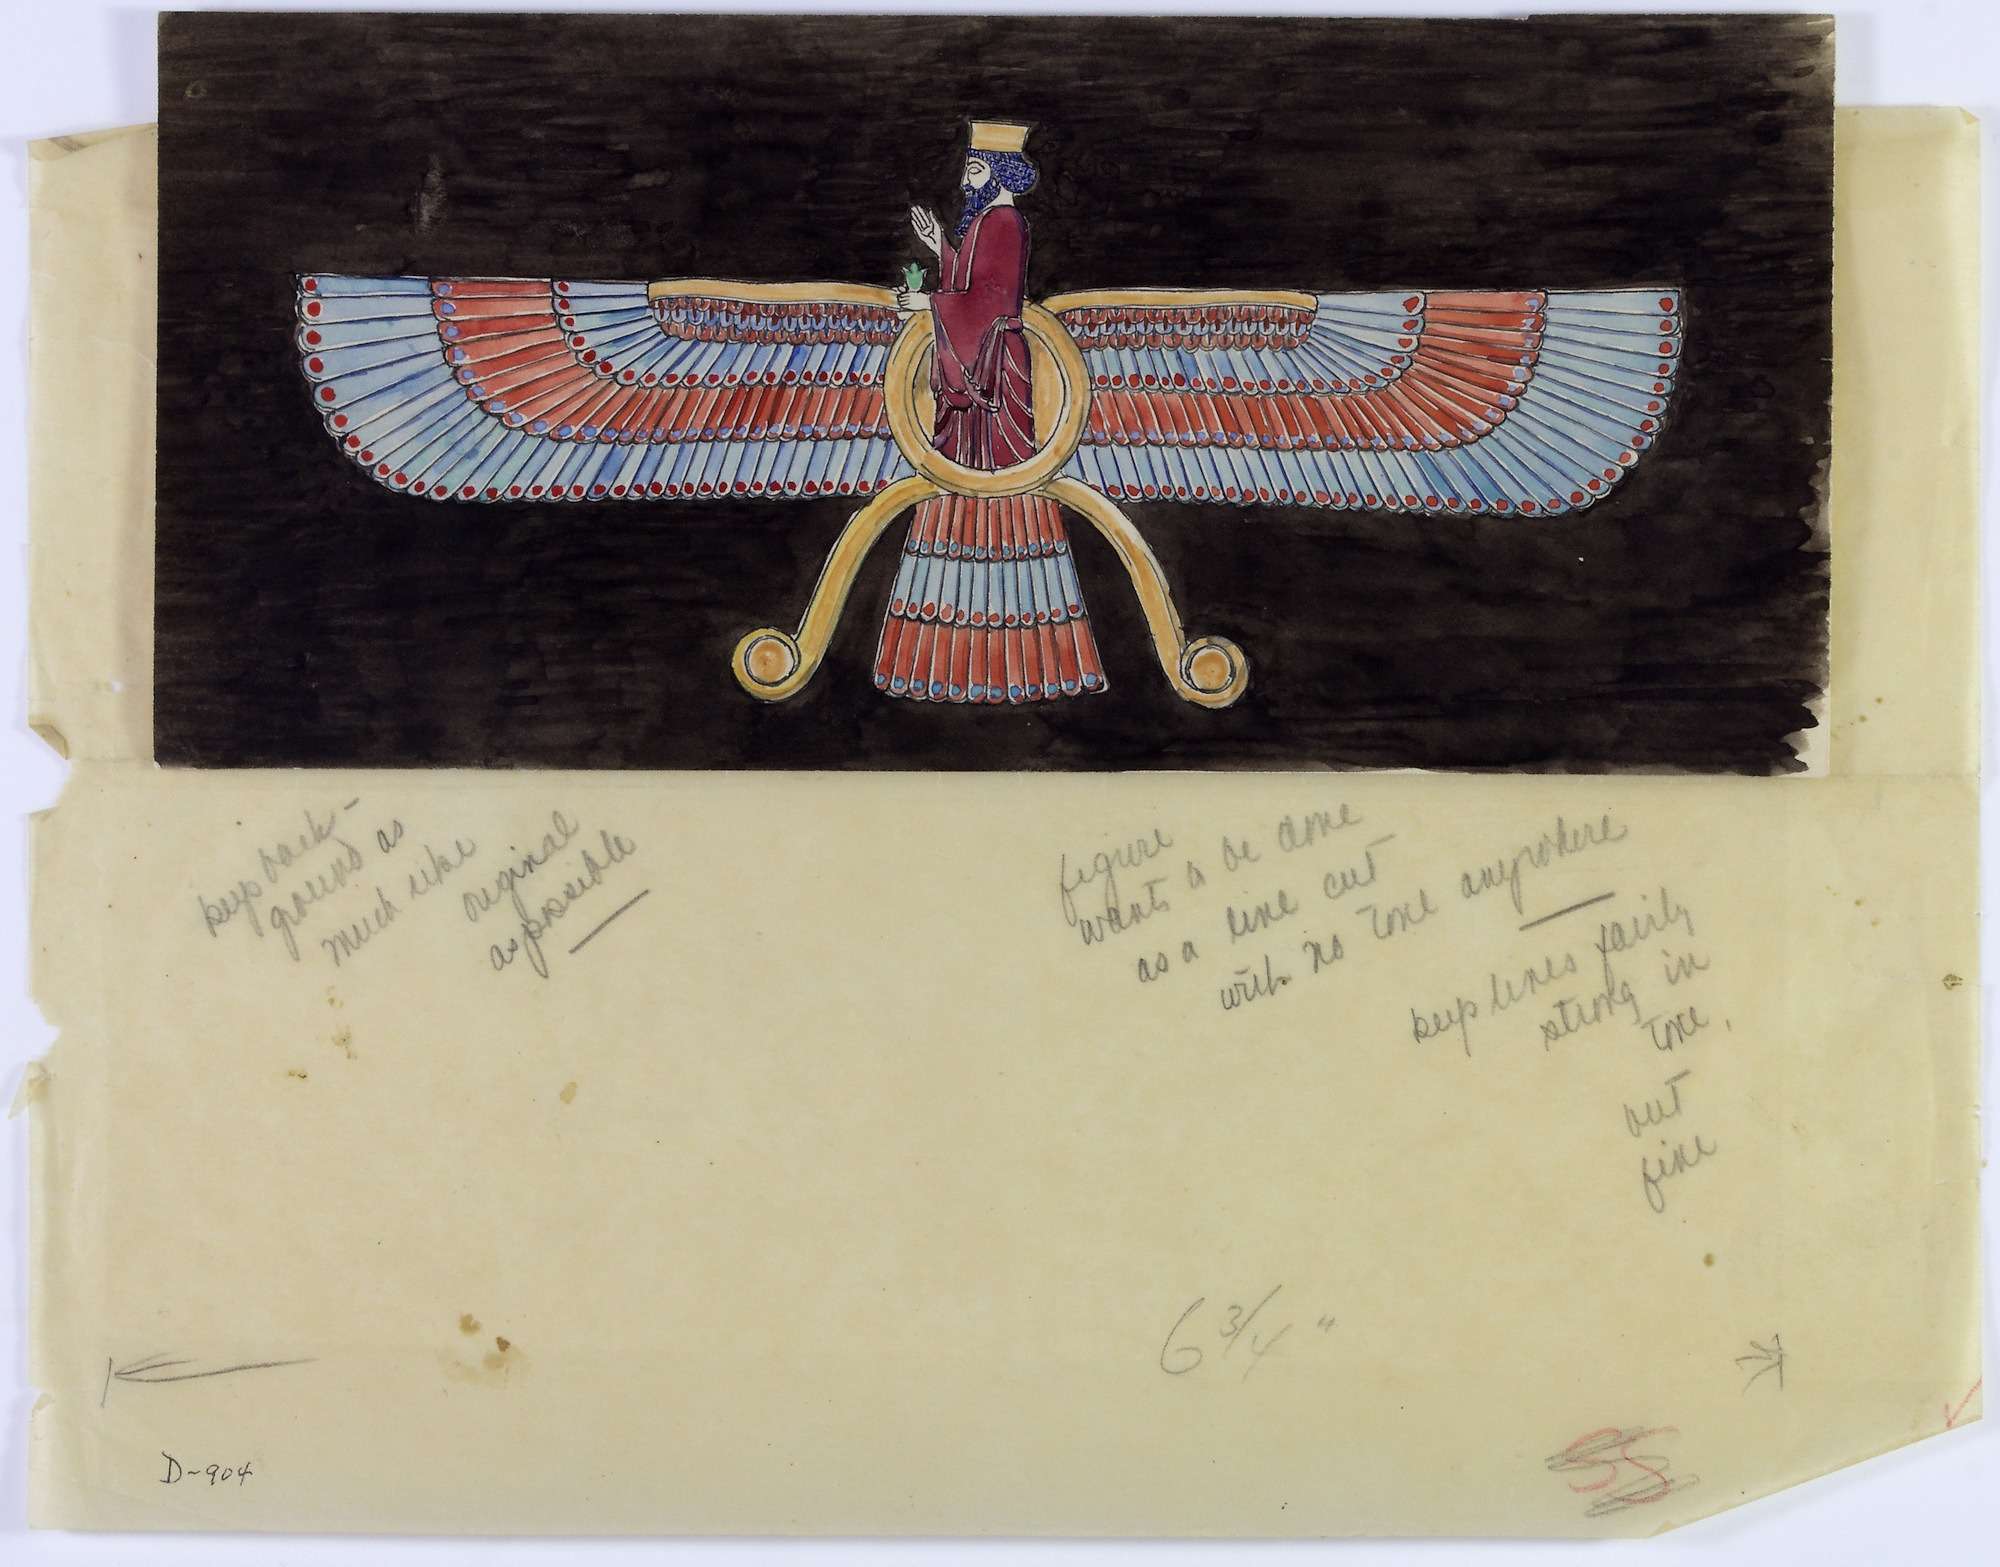 keep back-
ground as
much like
original
as possible
figure
wants to be done
as a line cut
with no tone anywhere
keep lines fairly
strong in
tone,
but
fine
6 3/4 "
D-904